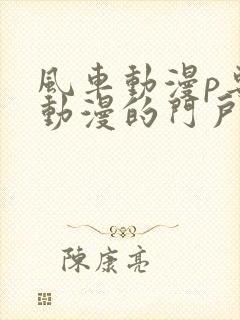 風車動漫p
動漫的門戶
陳康亮